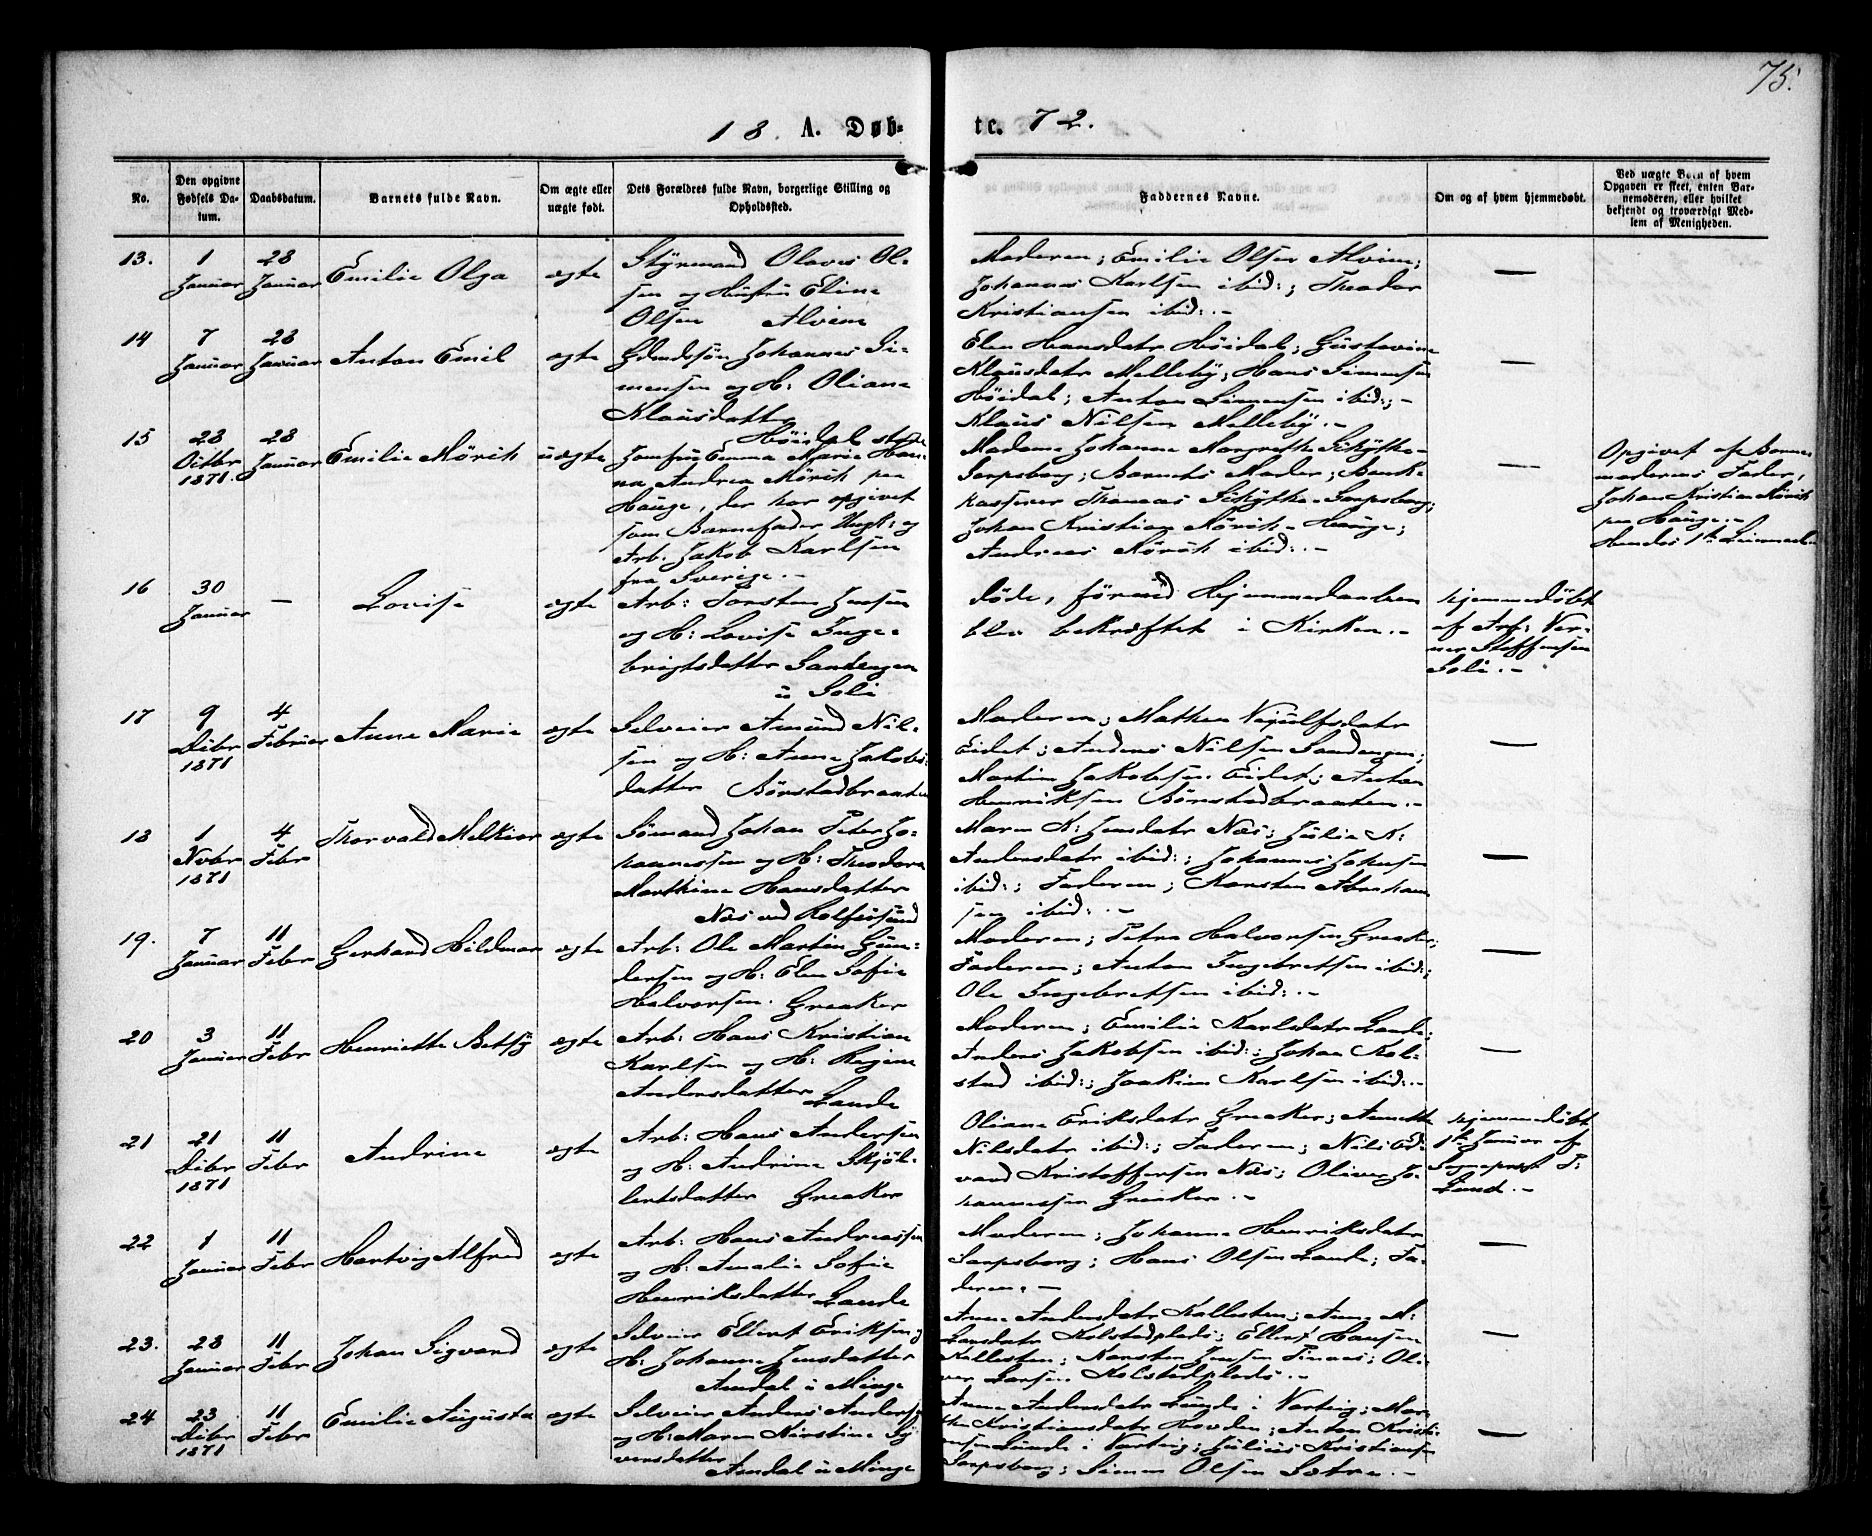 75.
18 A. Døb- te. 72.
No.
Den opgivne Fødsels Da-
tum.
Daabsdatum.
Barnets fulde Navn.
Om ægte eller
uægte født.
Dets Forældres fulde Navn, borgerlige Stilling og
Opholdssted.
Faddernes Navne.
Om og af hvem hjemmedøbt.
Ved uægte Børn af hvem
Opgaven er skeet, enten Bar-
nemoderen, eller hvilket
bekjendt og troværdigt Med-
lem af Menigheden.
13.
1
Januar
28
Januar
Emilie Olga
ægte
Styrmand Olaves Ol-
sen og Hustru Eline
Olsen Alvim
Moderen; Emilie Olsen Alvim;
Johannes Karlsen ibid:; Theodor
Kristiansen ibid:.-
—
14
7
Januar
28
Januar
Anton Emil
ægte
Johannes Si-
mensen og H: Oliane
Klausdatter
Høidal
Elen Hansdatr Høidal; Gustavine
Klausdatr Melleby; Hans Simensen
Høidal; Anton Simensen ibid:;-
Klaus Nilsen Melleby.-
—
15
28
Octbr
1871.
28
Januar
Emilie Mörch
uægte
Jomfru Emma Marie Han-
na Andrea Mörch paa
Hauge, der har opgivet
som Barnefader Ungk: og
Arb. Jakob Karlsen
fra Sverige.-
Madame Johanne Margrethe Schytte-
Sarpsborg; Barnets Moder; Bank-
kasserer Thomas Schytte-Sarpsborg;
Johan Kristian Mörch-Hauge;
Andreas Mörch ibid:.-
—
Opgivet af Barne-
moderens Fader,
Johan Kristian Mörch
paa Hauge.-
Hendes 1ste
16
30
Januar
—
Lovise
ægte
Arb: Torsten Jensen
og H: Lovise Inge-
brigtsdatter Sandengen
u Soli
døde, førend Hjemmedaaben
blev bekræftet i Kirken.-
hjemmedøbt
af Arb: Ver-
ner Steffensen
Soli.-
17
9
Dcbr
1871
4
Februar
Anne Marie
ægte
Selveier Amund Nil-
sen og H: Anne Jakobs-
datter Börstadbraaten
Moderen; Mathea
Eidet; Anders Nilsen Sandengen;
Martin Jakobsen Eidet; Anton
Henriksen Börstadbraaten.-
—
18
1
Novbr
1871
4
Febr
Thorvald Melkior
ægte
Sömand Johan Peter Jo-
hannessen og H: Theodora
Marthine Hansdatter
Næs ved Rolfsösund
Maren K: Jensdatr Næs; Julie K:
Andersdatr ibid:; Johannes Johnsen
ibid:; Faderen; Karsten Abraham-
sen ibid:.-
—
19.
7
Januar
11
Febr
Gerhard Hildmar
ægte
Arb: Ole Martin Gun-
dersen og H: Elen Sofie
Halvorsen. Greaker
Moderen; Petra Halvorsen Greaker;
Faderen; Anton Ingebretsen ibid:;
Ole Ingebretsen ibid:.-
—
20
3
Januar
11
Febr
Henriette Betsy
ægte
Arb: Hans Kristian
Karlsen og H: Regine
Andersdatter Lande
Moderen; Emilie Karlsdatr Lande;
Anders Jakobsen ibid:; Johan Kol-
stad ibid:; Joakim Karlsen ibid:.-
—
21
21
Dcbr
1871
11
Febr
Andrine
ægte
Arb: Hans Andersen
og H: Andrine Skjöl-
bertsdatter Greaker
Oliane Eriksdatr Greaker; Annette
Nilsdatr ibid:; Faderen; Nils Ed-
vard Kristoffersen Næs; Oliver Jo-
hannessen Greaker.-
hjemmedøbt
1ste Januar af
Sognepræst T.
Lund.-
22
1
Januar
11
Febr
Hartvig Alfred
ægte
Arb: Hans Andreassen
og H: Amalie Sofie
Henriksdatter Lande
Moderen; Johanne Henriksdatr
Sarpsborg; Hans Olsen Lande; Fa-
deren.-
—
23.
28
Januar
11
Febr
Johan Sigvard
ægte
Selveier Ellert Eriksen og
H: Johanne Jensdatter
Amdal u Minge
Anne Andersdatr Kallesten; Anne M:
Larsdatr Kolstadplads; Ellert Hansen
Kallesten; Karsten Jensen; Oli-
ver Larsen Kolstadplads.-
—
24
23
Dcbr
1871
11
Febr
Emilie Augusta
ægte
Selveier Anders Anders-
og H: Maren Kirstine Sy-
versdatter
Amdal u Minge
Anne Andersdatr Lunde i Varteig; Mar-
the Kristiansdatr Hovden; Anton Kristi-
ansen Lunde i Varteig; Julius Kristiansen
Sarpsborg; Simen Olsen Sætre.-
—